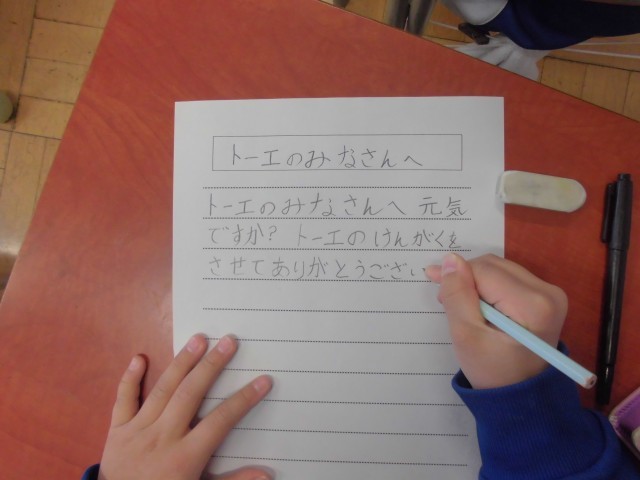 トーエのみなさんへ
トーエのみなさんへ 元気
ですか? トーエのけんがくを
させてありがとうござい